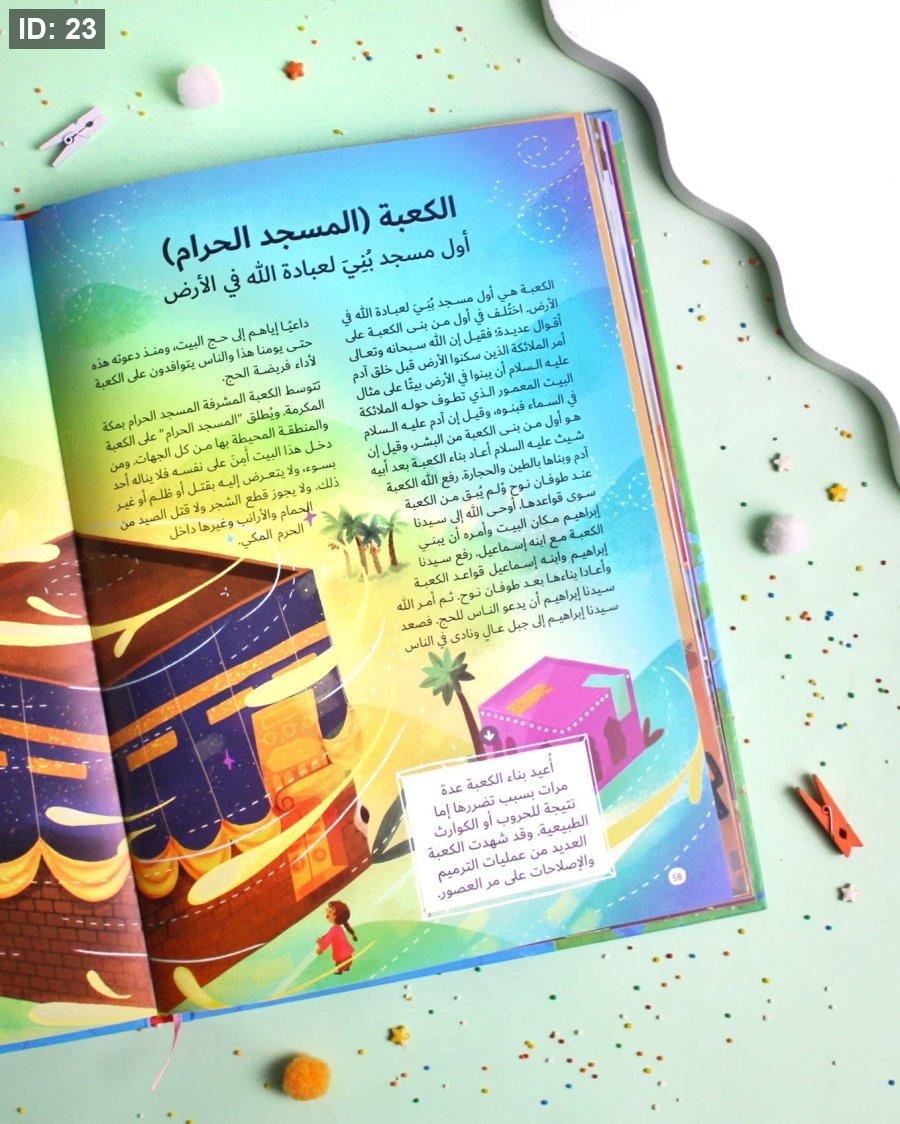 ID: 23
الكعبة (المسجد الحرام)
أول مسجد بُنِيَ لعبادة الله في الأرض
الكعبة هي أول مسجد بُنِيَ لعبادة الله في
الأرض. اختُلف في أول من بنى الكعبة على
أقوال عديدة؛ فقيل إن الله سبحانه وتعالى
أمر الملائكة الذين سكنوا الأرض قبل خلق آدم
عليه السلام أن يبنوا في الأرض بيتًا على مثال
البيت المعمور الذي تطوف حوله الملائكة
في السماء فبنوه، وقيل إن آدم عليه السلام
هو أول من بنى الكعبة من البشر، وقيل إن
شيث عليه السلام أعاد بناء الكعبة بعد أبيه
آدم وبناها بالطين والحجارة. رفع الله الكعبة
عند طوفان نوح ولم يُبق من الكعبة
سوى قواعدها. أوحى الله إلى سيدنا
إبراهيم مكان البيت وأمره أن يبني
الكعبة مع ابنه إسماعيل. رفع سيدنا
إبراهيم وابنه إسماعيل قواعد الكعبة
وأعادا بناءها بعد طوفان نوح. ثم أمر الله
سيدنا إبراهيم أن يدعو الناس للحج. فصعد
سيدنا إبراهيم إلى جبل عالٍ ونادى في الناس
داعيًا إياهم إلى حج البيت، ومنذ دعوته هذه
حتى يومنا هذا والناس يتوافدون على الكعبة
لأداء فريضة الحج.
تتوسط الكعبة المشرفة المسجد الحرام بمكة
المكرمة. ويُطلق "المسجد الحرام" على الكعبة
والمنطقة المحيطة بها من كل الجهات. ومن
دخل هذا البيت أمِنَ على نفسه فلا يناله أحد
بسوء، ولا يتعرض إليه بقتل أو ظلم أو غير
ذلك. ولا يجوز قطع الشجر ولا قتل الصيد من
الحمام والأرانب وغيرها داخل
الحرم المكي.
أُعيد بناء الكعبة عدة
مرات بسبب تضررها إما
نتيجة للحروب أو الكوارث
الطبيعية. وقد شهدت الكعبة
العديد من عمليات الترميم
والإصلاحات على مر العصور.
58